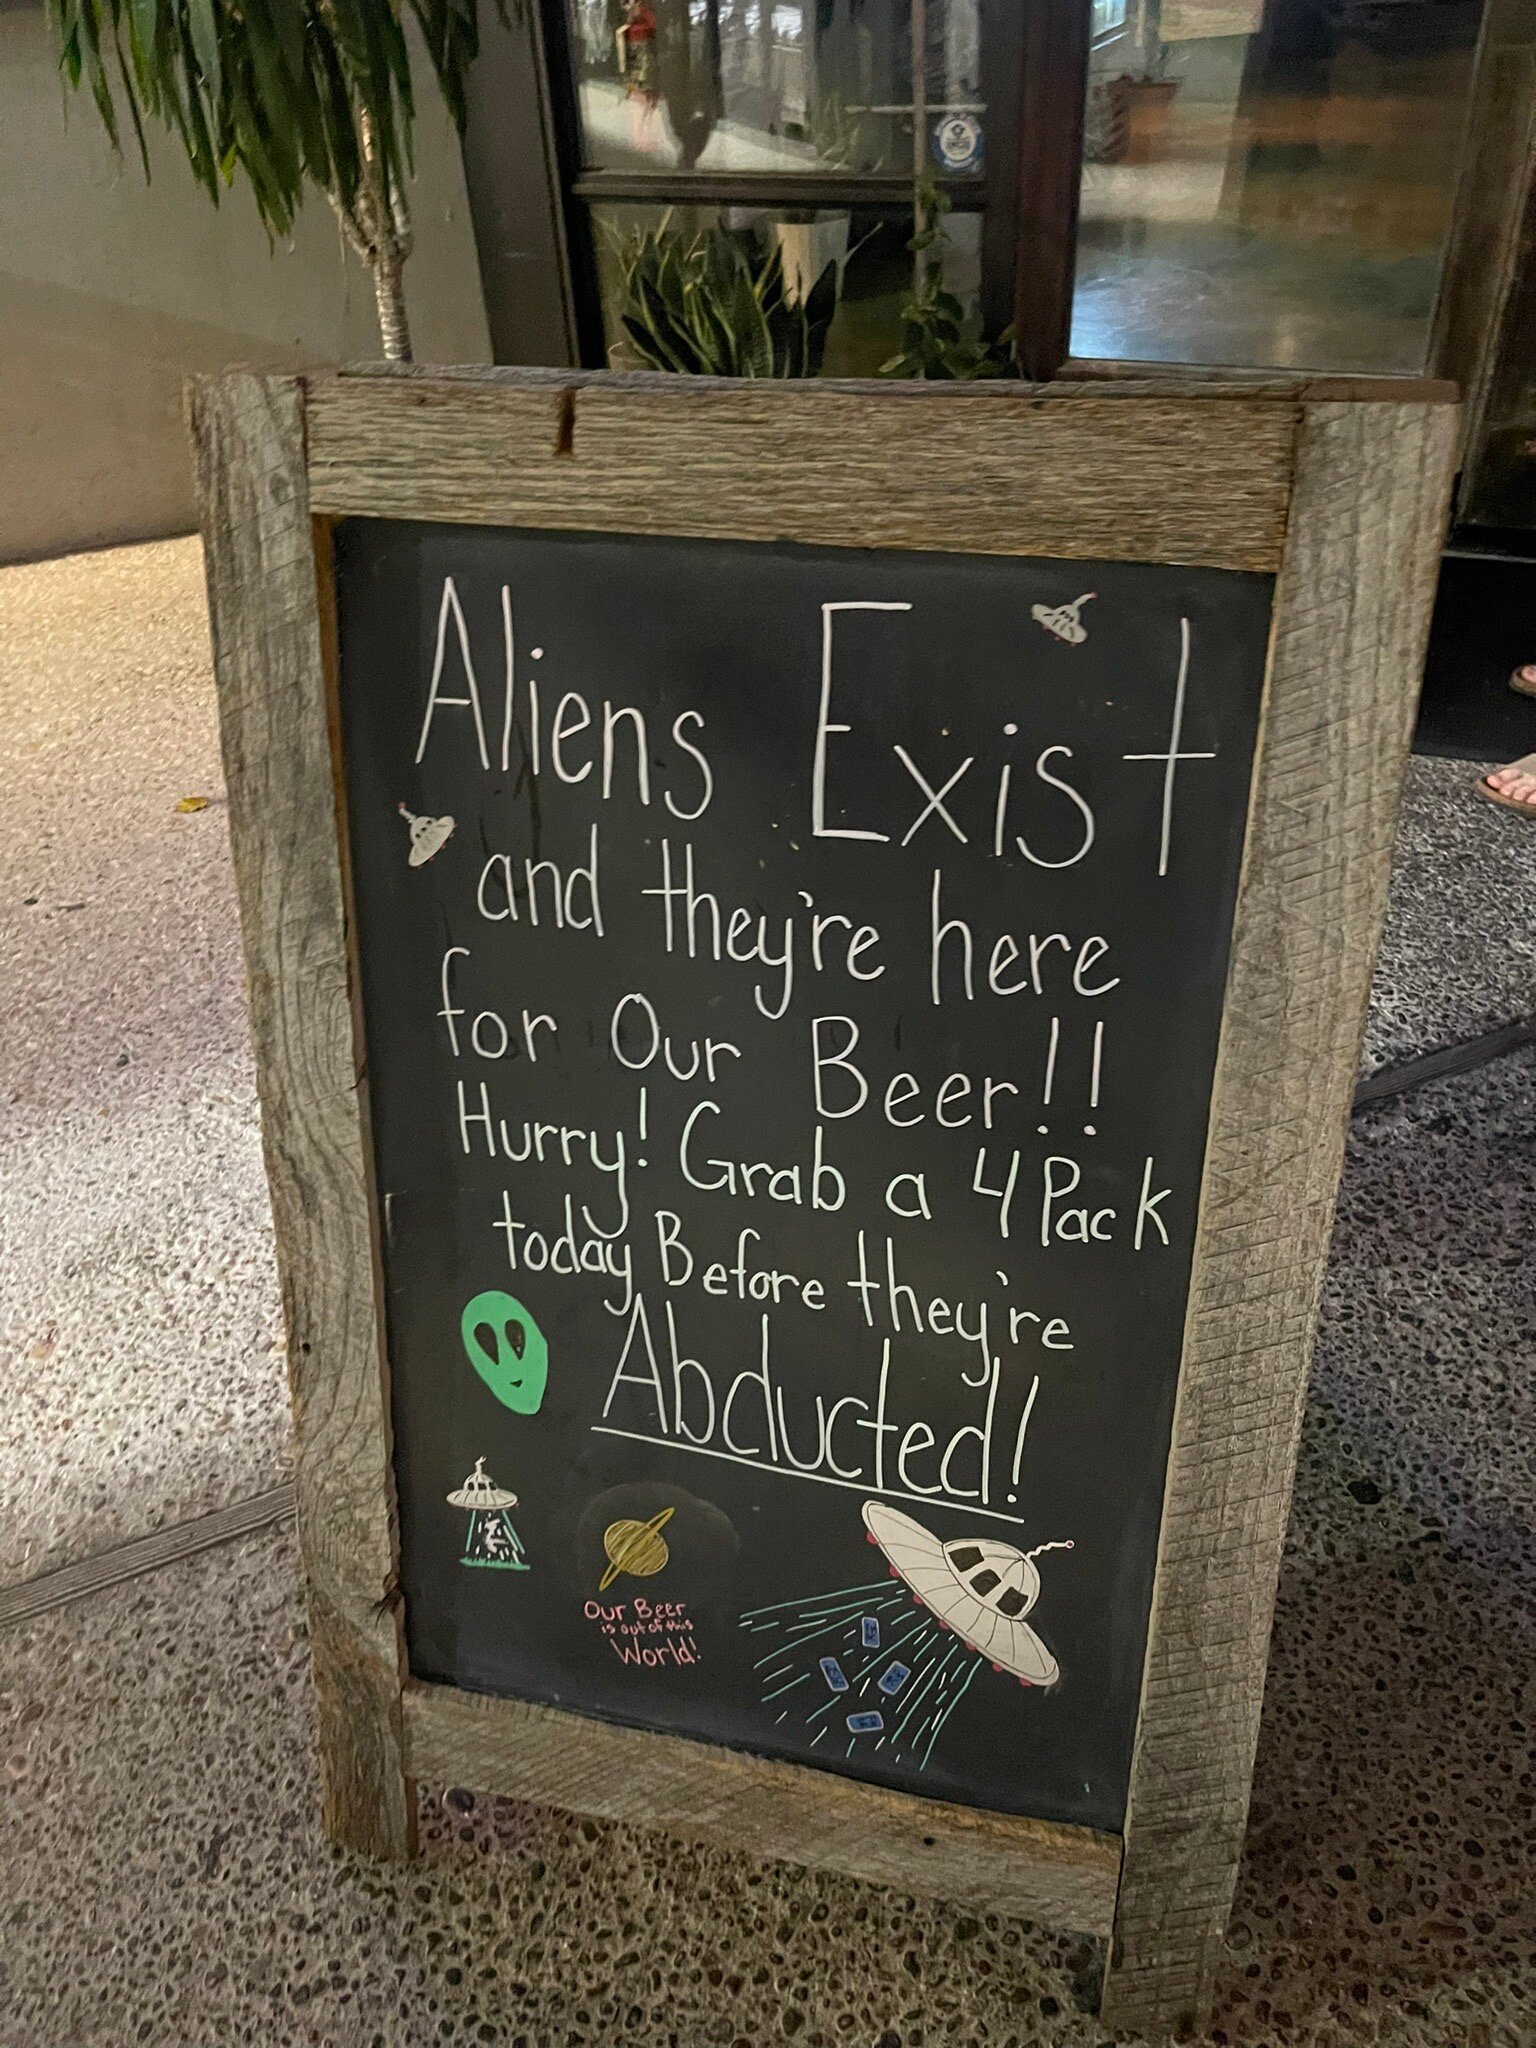 Aliens Exist
and they're here
for Our Beer!!
Hurry! Grab a 4 Pack
today Before they're
Abducted!
Our Beer
is out of this
World!